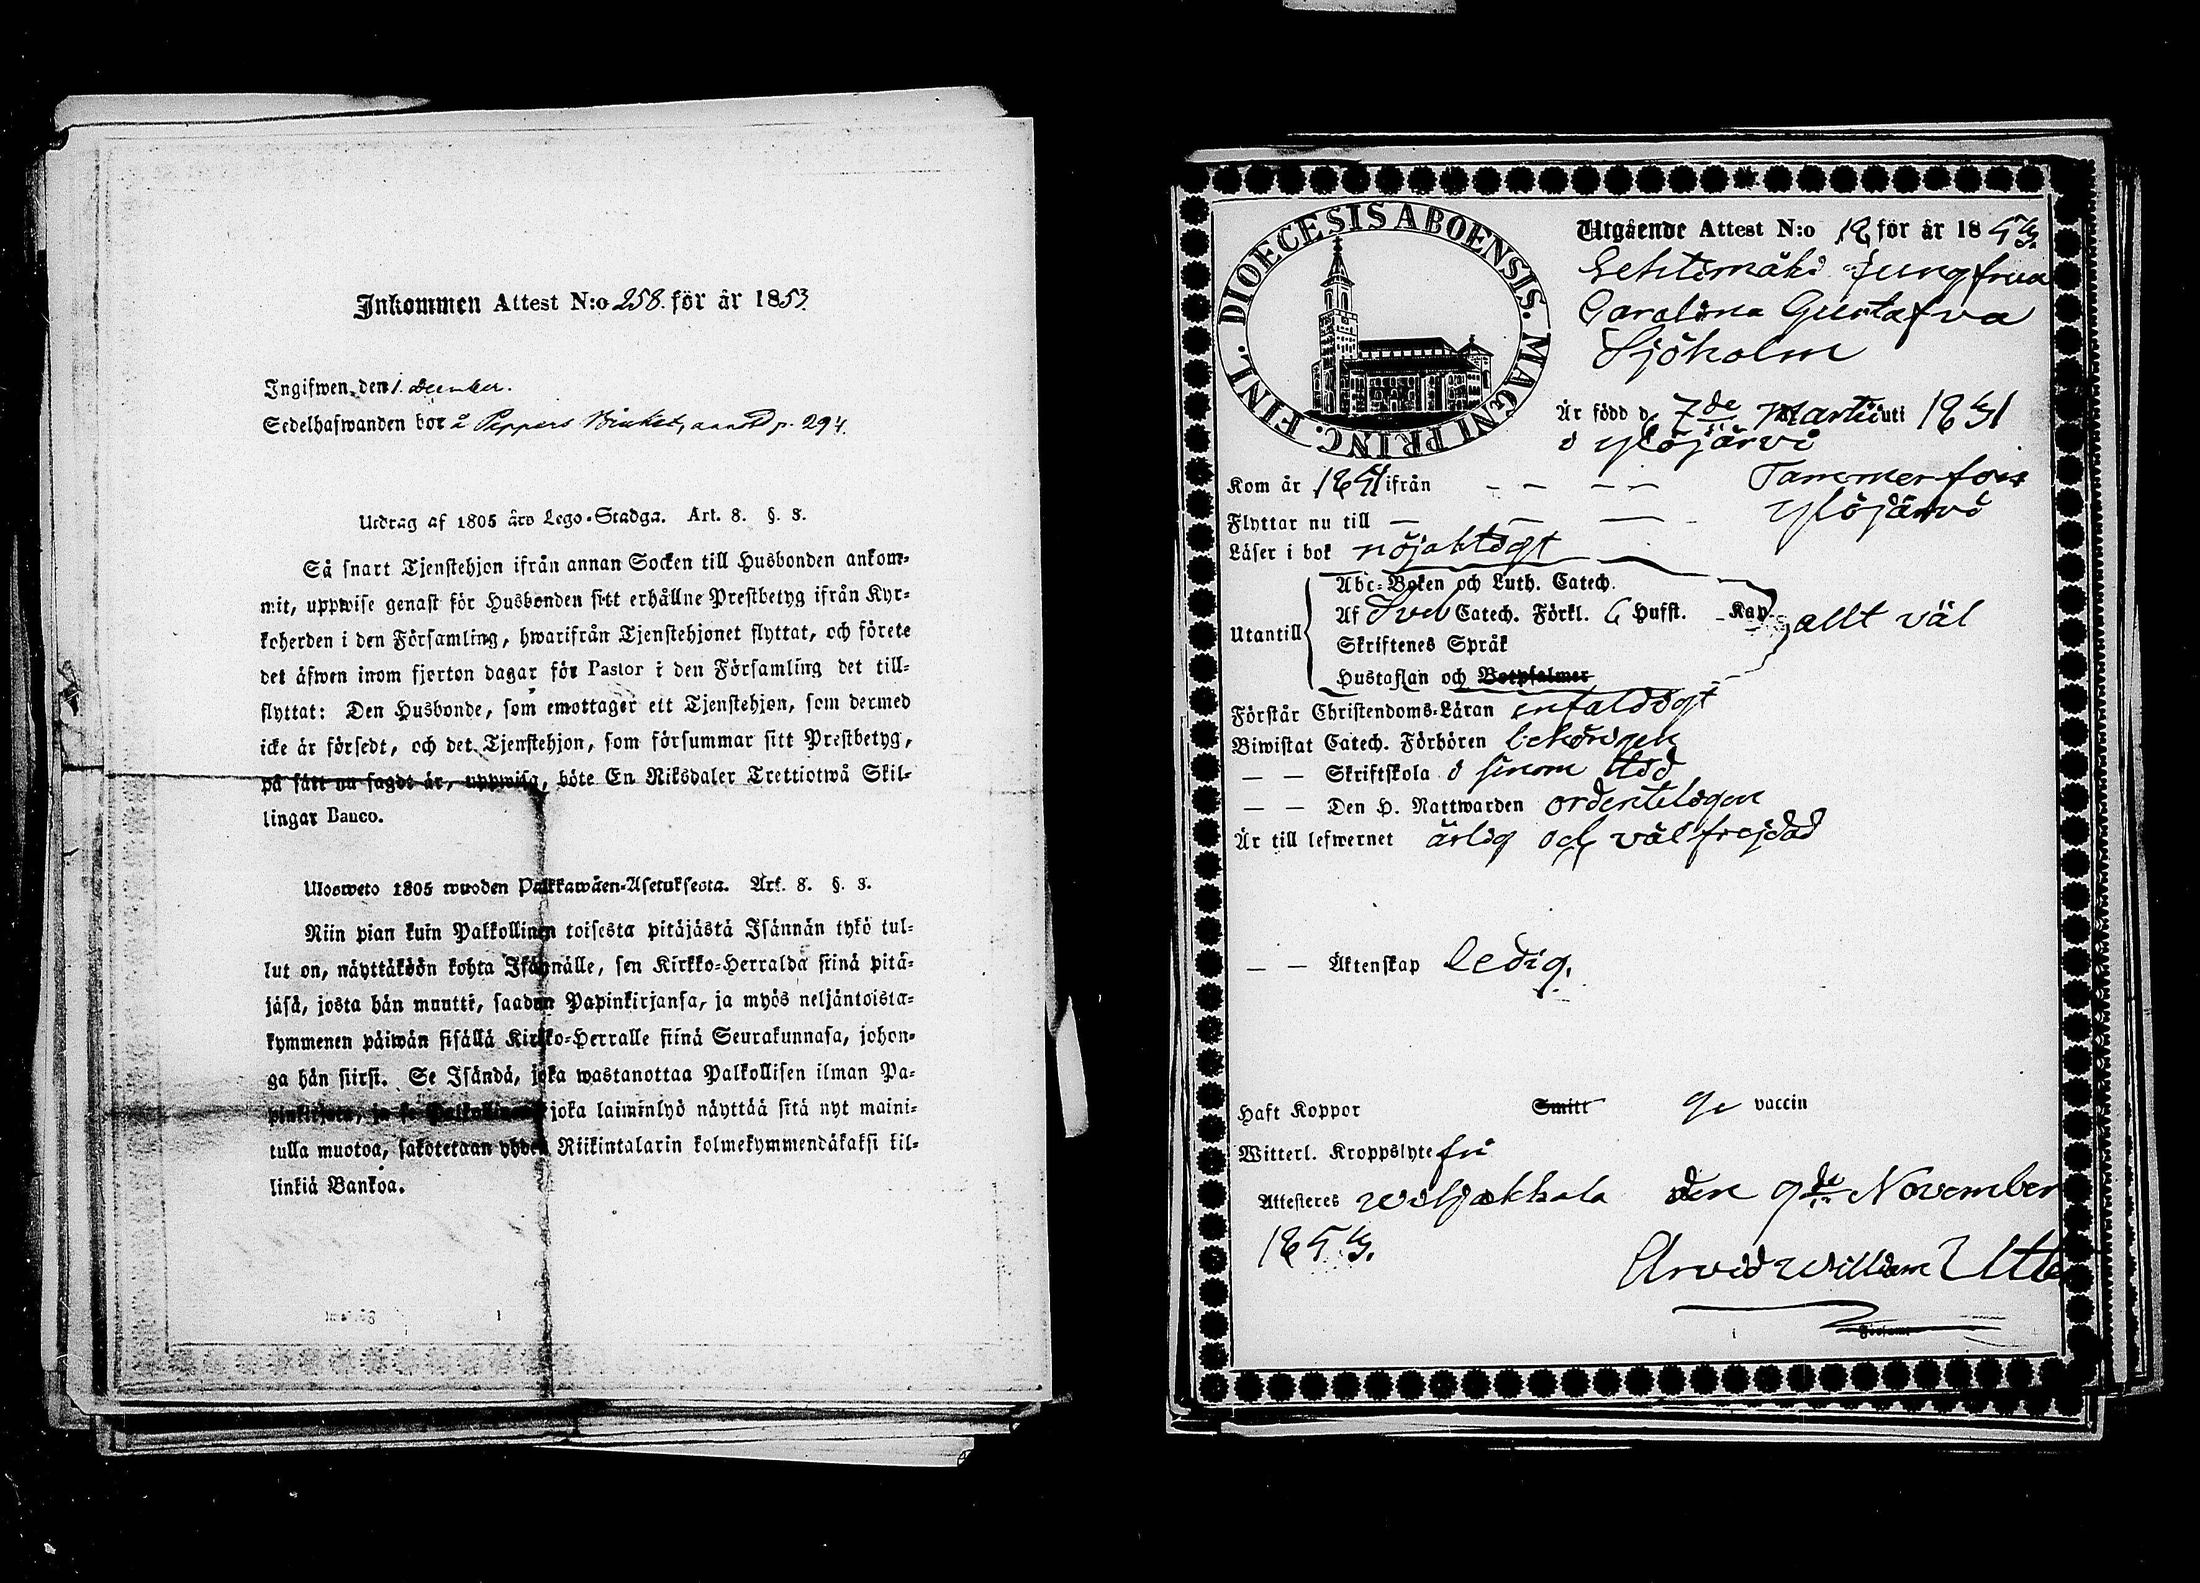 Inkommen Attest N:o 258. för år 1853.
Ingifwen den 1. December.
Sedelhafwanden bor å Peppers Bruket, p. 294.
Utdrag af 1805 års Lego-Stadga. Art. 8. §. 8.
Så snart Tjenstehjon ifrån annan Socken till Husbonden ankom-
mit, uppwise genast för Husbonden sitt erhållne Prestbetyg ifrån Kyr-
koherden i den Församling, hwarifrån Tjenstehjonet flyttat, och förete
det äfwen inom fjorton dagar för Pastor i den Församling det till-
flyttat: Den Husbonde, som emottager ett Tjenstehjon, som dermed
icke är försedt, och det Tjenstehjon, som försummar sitt Prestbetyg,
på sätt nu sagdt är, uppwisa, böte En Riksdaler Trettiotwå Skil-
lingar Banco.
Ulosweto 1805 wuoden Palkkawäen-Asetuksesta. Art. 8. §. 8.
Niin pian kuin Palkollinen toisesta pitäjästä Isännän tykö tul-
lut on, näyttäköön kohta Isännälle, sen Kirkko-Herralda siinä pitä-
jäsä, josta hän muutti, saadun Papinkirjansa, ja myös neljäntoista-
kymmenen päiwän sisällä Kirkko-Herralle siinä Seurakunnasa, johon-
ga hän siirsi. Se Isändä, joka wastanottaa Palkollisen ilman Pa-
pinkirjata, ja se Palkollinen joka laiminlyö näyttää sitä nyt maini-
tulla muotoa, sakotetaan yhden Riikintalarin kolmekymmendäkaksi kil-
linkiä Bankoa.
DIOECESIS ABOENSIS. MAGNI PRINC. FINL.
Utgående Attest N:o 12 för år 1853.
Lehtimäki Jungfrun
Carolina Gustafva
Sjöholm
Är född d. 7de Martii uti 1831
i Ylöjärvi
Kom år 1851 ifrån — — — — Tammerfors
Flyttar nu till — — — Ylöjärvi
Läser i bok nöjaktigt
Utantill
Abc-Boken och Luth. Catech.
Af Sveb Catech. Förkl. 6 Hufst. - Kap. allt väl
Skriftenes Språk
Hustaflan och Botpsalmer
Förstår Christendoms-Läran enfaldigt
Biwistat Catech. Förhören behörigen
— — Skriftskola i sinom tid
— — Den H. Nattwarden ordenteligen
Är till lefwernet ärlig och välfrejdad
— — Äktenskap ledig.
Haft Koppor Smitt ge vaccin
Witterl. Kroppslyte fri
Attesteres Wiljakkala den 9de November
1853.
Arvid William Utter